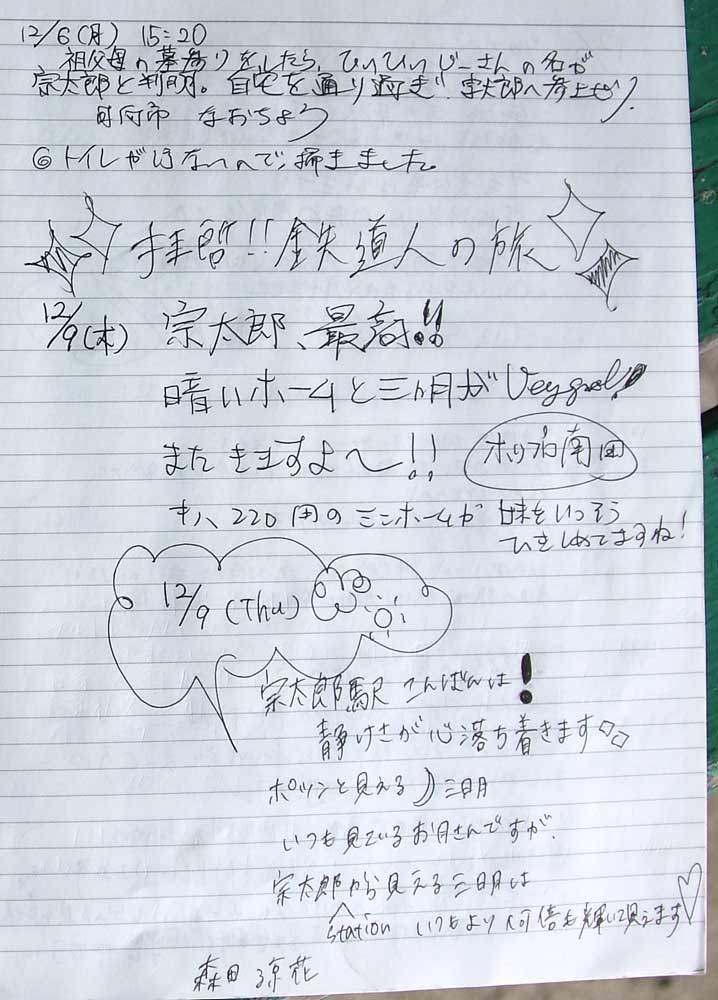 12/6(月) 15:20
祖父母の墓参りをしたら、ひいひいじーさんの名が
宗太郎と判明。自宅を通り過ぎ、宗太郎へ参上せり。
日向市 なおちょう
◎トイレが
掃きました。
拝啓!!鉄道人の旅
12/9(木) 宗太郎、最高!!
暗いホームと三日月が Very good!
またきますよ〜!!
南田
キハ220 用のミニホームが 味をいっそう
ひきしめてますね!
12/9 (Thu)
宗太郎駅 こんばんは!
静けさが心落ち着きます◇◇
ポツンと見える 三日月
いつも見ているお月さんですが、
宗太郎から見える三日月は
station いつもより何倍も輝いて見えます♡
森田 涼花